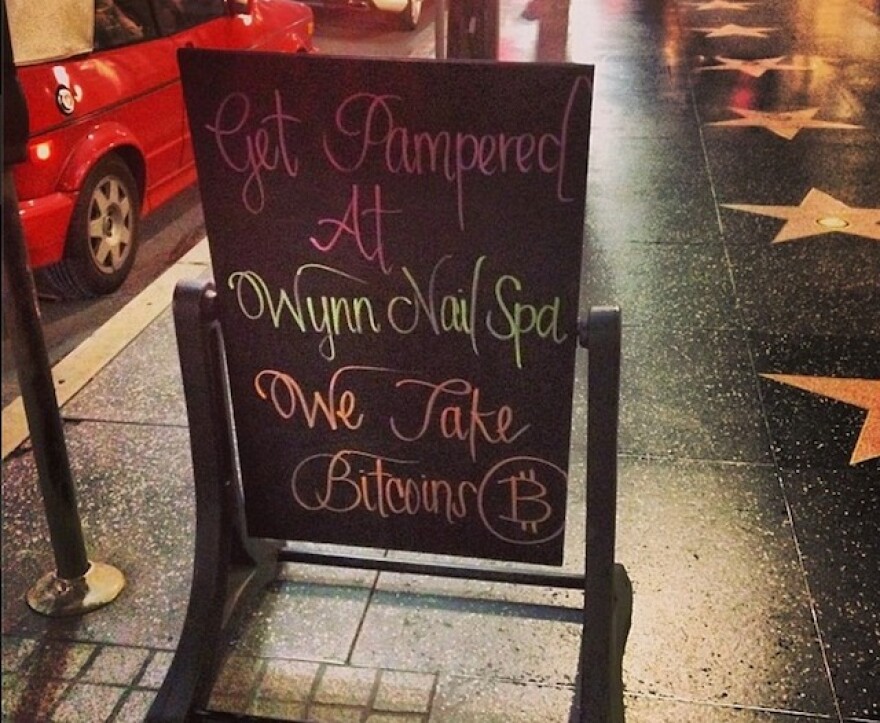 Get Pampered
At
Wynn Nail Spa
We Take
Bitcoins ₿